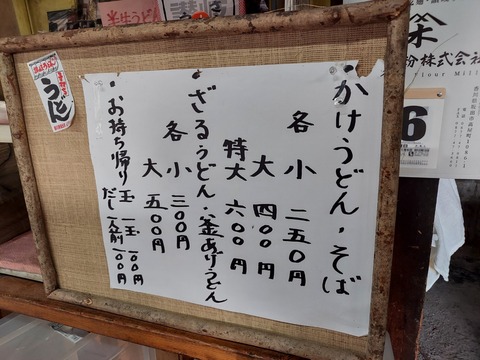 ・かけうどん・そば
各 小 二五〇円
大 四〇〇円
特大 六〇〇円
・ざるうどん・釜あげうどん
各 小 三〇〇円
大 五〇〇円
・お持ち帰り 玉 一玉 一〇〇円
だし 一人前 一〇〇円
うどん
半生うどん
讃岐
粉株式会社
6